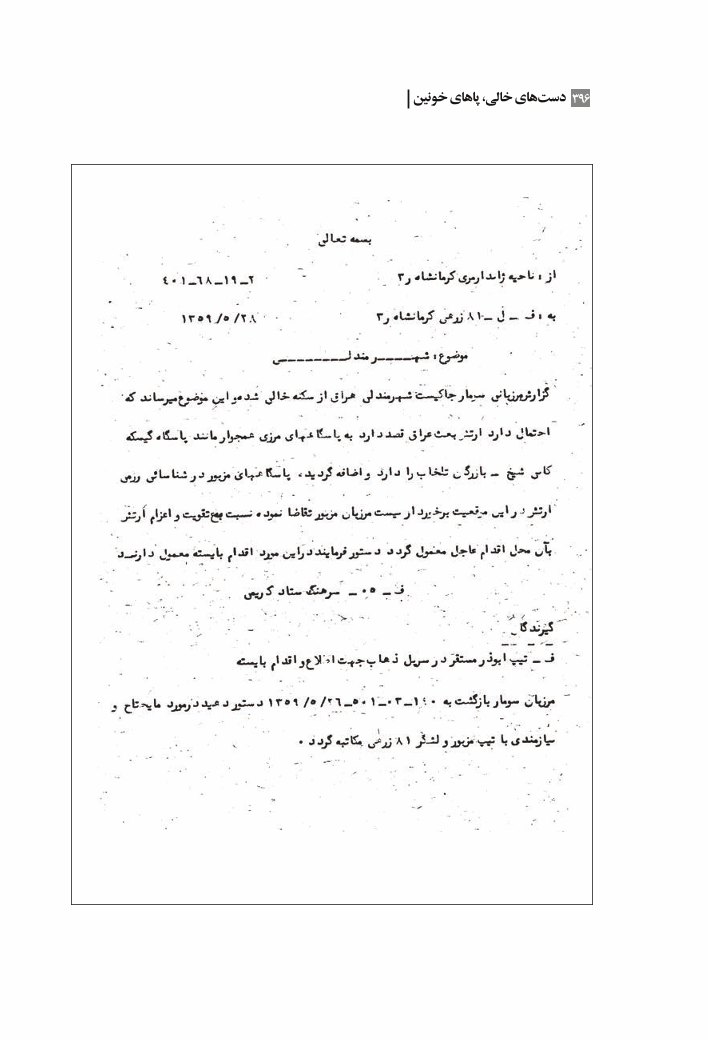 ۳۹۶ دست‌های خالی، پاهای خونین
بسمه تعالی
از : ناحیه ژاندارمری کرمانشاه ر۳ ۲ـ۱۹ـ۶۸ـ۴۰۱
به : ف ـ ل ـ ۸۱ زرهی کرمانشاه ر۳ ۱۳۵۹/۵/۲۸
موضوع : شهــــر مندلـــــــی
گزارش مرزبانی سومار حاکیست شهر مندلی عراق از سکنه خالی شده و این موضوع میرساند که
احتمال دارد ارتش بعث عراق قصد دارد به پاسگاههای مرزی همجوار مانند پاسگاه گیسکه
کانی شیخ ـ بازرگان تلخاب را دارد و اضافه گردید، پاسگاههای مزبور در شناسائی رزمی
ارتش در این موقعیت برخوردار نیست مرزبان مزبور تقاضا نموده نسبت به تقویت و اعزام ارتش
بآن محل اقدام عاجل معمول گردد دستور فرمایند در این مورد اقدام بایسته معمول دارنـد
ف ـ ۰۵ ـ سرهنگ ستاد کریمی
گیرندگان
ف ـ تیپ ابوذر مستقر در سرپل ذهاب جهت اطلاع و اقدام بایسته
مرزبان سومار بازگشت به ۱۴۰ـ۰۳ـ۵۰۱ـ ۱۳۵۹/۵/۲۶ دستور دهید در مورد مایحتاج و
نیازمندی با تیپ مزبور و لشگر ۸۱ زرهی مکاتبه گردد ۰